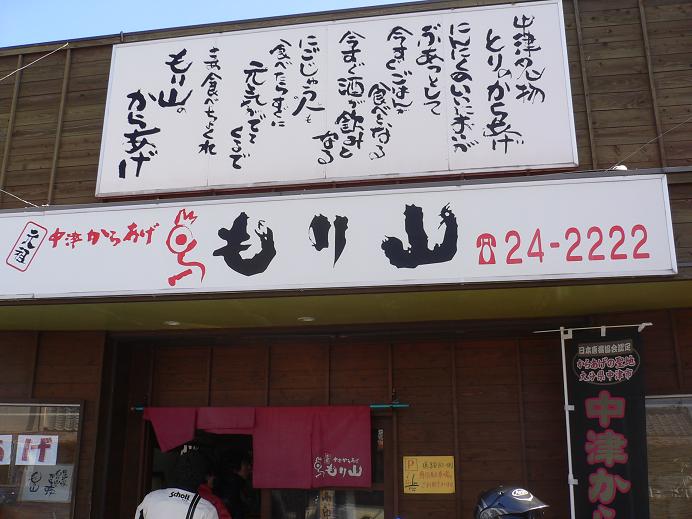 中津名物
とりのからあげ
にんにくのいいにおいが
ぷあっとして
今すぐごはんが
食べとなる
今すぐ酒が飲みと
なる
にごじゅう人も
食べたらすぐに
元気がでて
くるで
まあ食べちょくれ
もり山の
からあげ
元祖
中津からあげ
もり山
☎24-2222
日本唐揚協会認定
からあげの聖地
大分県中津市
中津から
中津からあげ
もり山
あげ
P
Scholl
Arai